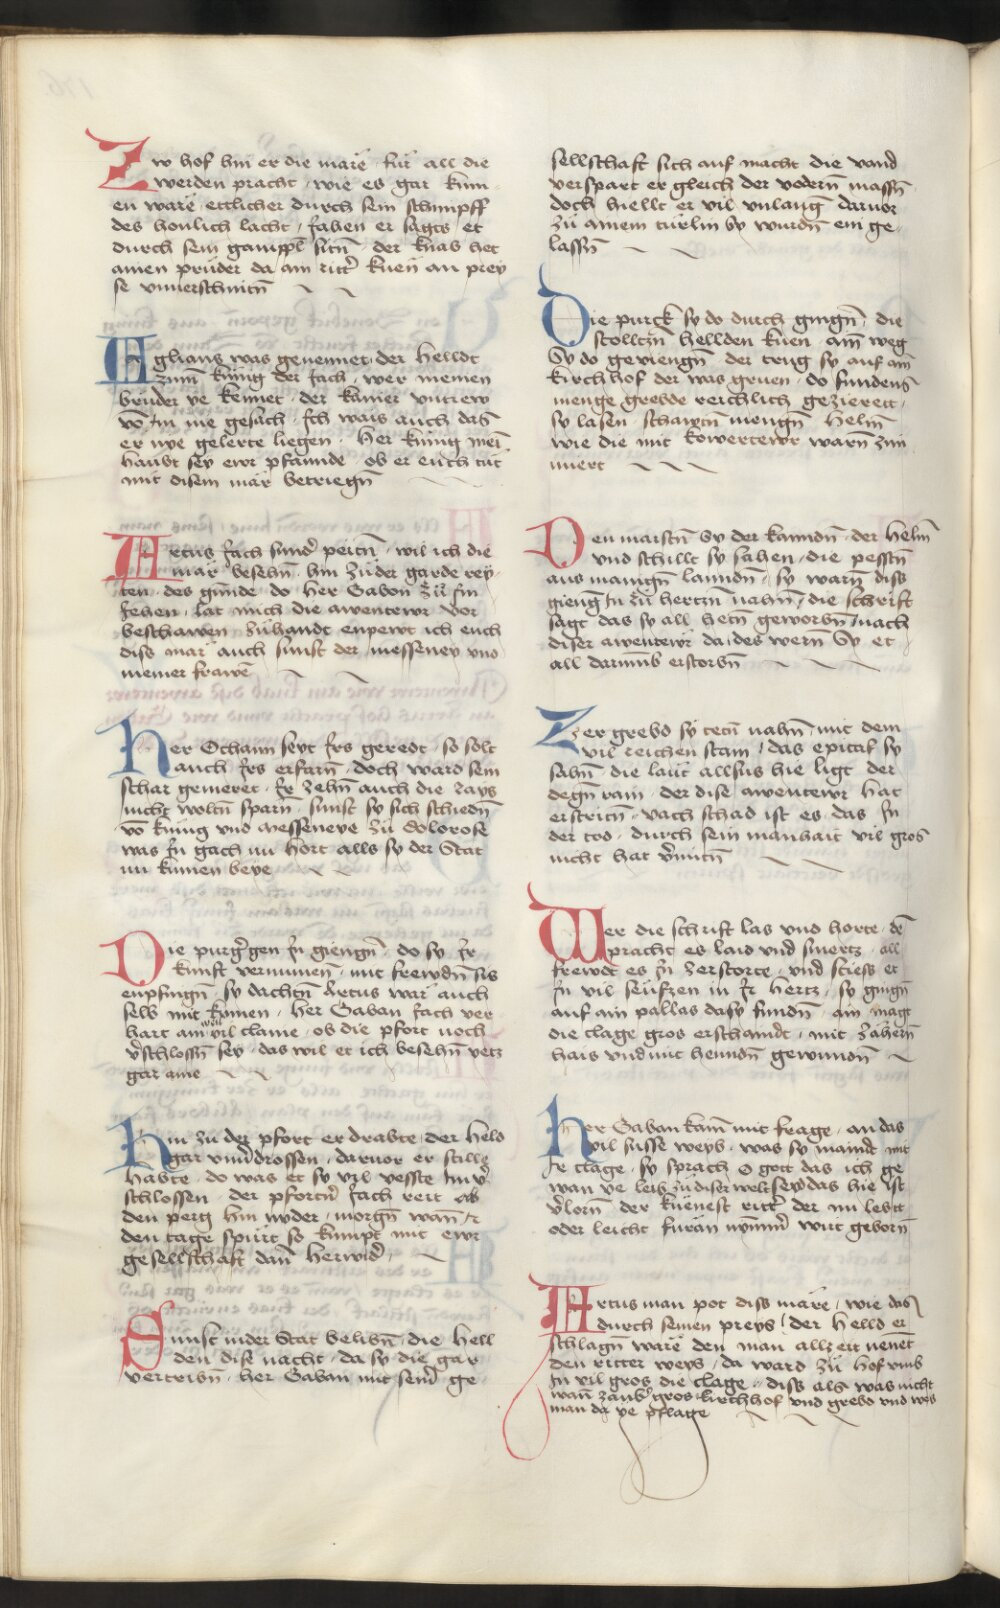 Zw hof hin er die mare für all die
werden pracht wie es gar kum
en ware ettlicher durch sein schimpff
des honlich lacht Jahen er sagts et
durch sein gamppl sitn der knas het
ainen prüder da ain rittr kuen an prey
se vnuerschnitn
Eglians was genennet der Helldt
zum künig der sach wer meinen
brüder ye kennet der kainer vntrew
vō im nie gesach Ich wais auch das
er nye gelerte liegen Her künig mei
haubt sey ewr pfannde ob er euch tüt
mit disem mär betriegn
Artus sach sunder peitn wil ich die
mär besehn hin zu der garde rey
ten des günde do Her Gaban zü im
Jehen lat mich die awentewr vor
beschawen zühandt enpewt ich euch
diss mär auch sunst der messeney vnd
meiner frawē
Her Ochann seyt Irs geredt so solt
auch Irs erfarn doch ward sein
schar gemeret Ir zehn auch die rays
nicht woltn sparn sunst sy sich schiedn
vō künig vnd Messeneye zü Dolorose
was In gach nu hort alls sy der Stat
nu kumen beye
Die purgrgen In giengn do sy Ir
kunft vernumen mit frewdn sis
enpfingn sy dachtn Artus wär auch
selb mit kumen Her Gaban sach ver
hart ain vil claine ob die pfort noch
vrschlossn sey das wil et ich besehn yetz
gar aine
Hin zu der pfort er drabte der held
gar vnurdrossen daruor er stille
habte do was et sy vil vesste Im vr
schlossen der pfortnr sach reit ab
den perg hin nyder morgn wann
den tage spürt so kumpt mit ewr
gesellschaft dan herwidr
Sunst inder Stat belibn die Hell
den dise nacht da sy die gar
vertribn her Gaban mit seinr ge
sellschaft sich auf macht die vand
verspart er gleich der vodern massn
doch hiellt er vil vnlang daruor
zü ainem türlin sy wurdn ein ge
lassn
Die purck sy do durch gingn die
stolltzn hellden küen ain weg
Sy do geviengn der trug sy auf ain
kirchhof der was gruen do fundens
menge grebde reichlich gezierett
sy lasen schawtn mengn Helm
wie die mit kowertewr warn zim
miert
Den maistn Sy der kanndn der Helm
vnd schillt sy sahen die pesstn
aus manign lanndn sy warn diss
gieng In zu hertzn nahn die schrift
sagt das sy all hetn geworbn nach
diser awentewr da des wern Sy et
all darumb erstorbn
Zer grebd sy tetn nahn mit dem
vil reichen stain das epitaf sy
sahn die laut allsus hie ligt der
degn rain der dise awentewr hat
erstritn vach schad ist es das In
der tod durch sein manhait vil gros
nicht hat vrmitn
Wer die schrift las vnd horte dē
pracht es laid vnd smertz all
frewdt es In zerstorte vnd stiess er
In vil seufzen in Ir hertz sy gingn
auf ain pallas da sy fundn ain magt
die clage gros erschaindt mit zähern
hais vnd mit henndn gewundn
Her Gaban kam mit frage an das
vil susse weyb was sy maindt mit
Ir clage sy sprach O gott das ich ge
wan ye leib zü diser welt seyd das hie ist
vrlorn der küenest rittr der nu lebt
oder leicht furan nymmr wirt geborn
Artus man pot diss märe wie das
durch seinen preys der helld er
schlagn ware den man allzeit nenēt
den ritter weys da ward zü hof vmb
In vil gros die clage diss als was nicht
wan zaubr gros kirchhof vnd grebd vnd wes
man da ye pflage